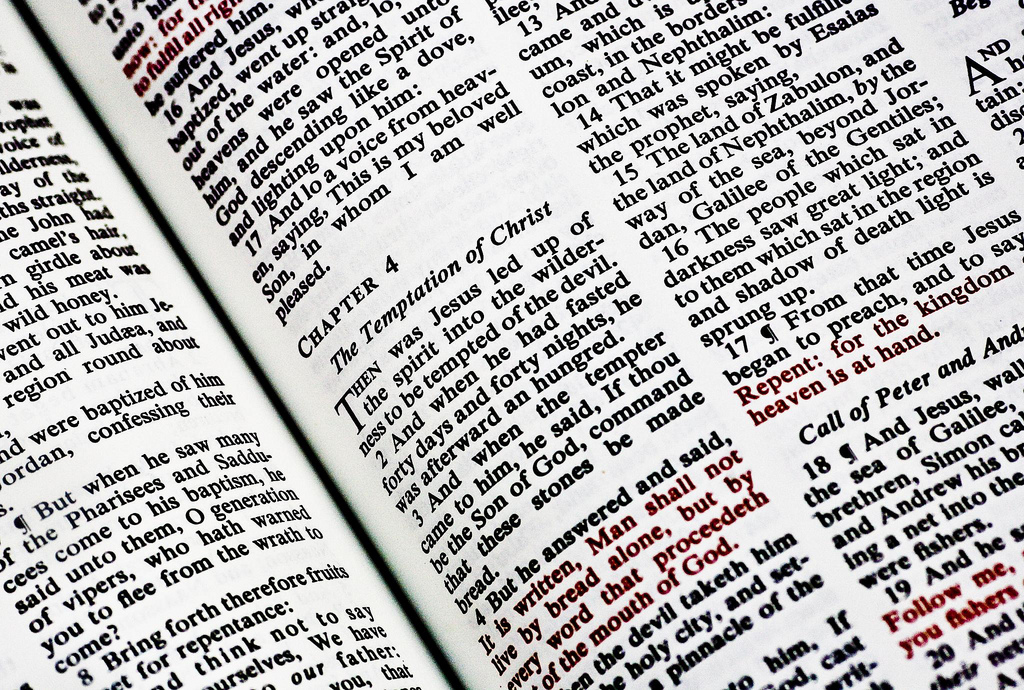 was
voice of
ilderness,
ay of the
ths straight.
e John had
camel's hair,
n girdle about
d his meat was
wild honey.
vent out to him Je-
and all Judæa, and
region round about
nd were baptized of him
ordan, confessing their
¶ But when he saw many
of the Pharisees and Saddu-
cees come to his baptism, he
said unto them, O generation
of vipers, who hath warned
you to flee from the wrath to
come?
8 Bring forth therefore fruits
et for repentance:
think not to say
ourselves, We have
to our father:
you, that
now: for
to fulfil all righ
he suffered him.
16 And Jesus, wh
baptized, went up straig
out of the water: and, lo,
heavens were opened unto
him, and he saw the Spirit of
God descending like a dove,
and lighting upon him:
17 And lo a voice from heav-
en, saying, This is my beloved
Son, in whom I am well
pleased.
CHAPTER 4
The Temptation of Christ
THEN was Jesus led up of
the spirit into the wilder-
ness to be tempted of the devil.
2 And when he had fasted
forty days and forty nights, he
was afterward an hungred.
3 And when the tempter
came to him, he said, If thou
be the Son of God, command
that these stones be made
bread.
4 But he answered and said,
It is written, Man shall not
live by bread alone, but by
every word that proceedeth
out of the mouth of God.
the devil taketh him
the holy city, and set-
a pinnacle of the
to him, If
God, cast
writ-
13 And
came and d
um, which is
coast, in the borders
lon and Nephthalim:
14 That it might be fulfille
which was spoken by Esaias
the prophet, saying,
15 The land of Zabulon, and
the land of Nephthalim, by the
way of the sea, beyond Jor-
dan, Galilee of the Gentiles;
16 The people which sat in
darkness saw great light; and
to them which sat in the region
and shadow of death light is
sprung up.
17 ¶ From that time Jesus
began to preach, and to say
Repent: for the kingdom
heaven is at hand.
Call of Peter and And
18 ¶ And Jesus, walk
the sea of Galilee,
brethren, Simon ca
and Andrew his br
ing a net into the
were fishers.
19 And he sa
Follow me,
you fishers
20 And t
their net
Beg
AND
tain:
disc
2